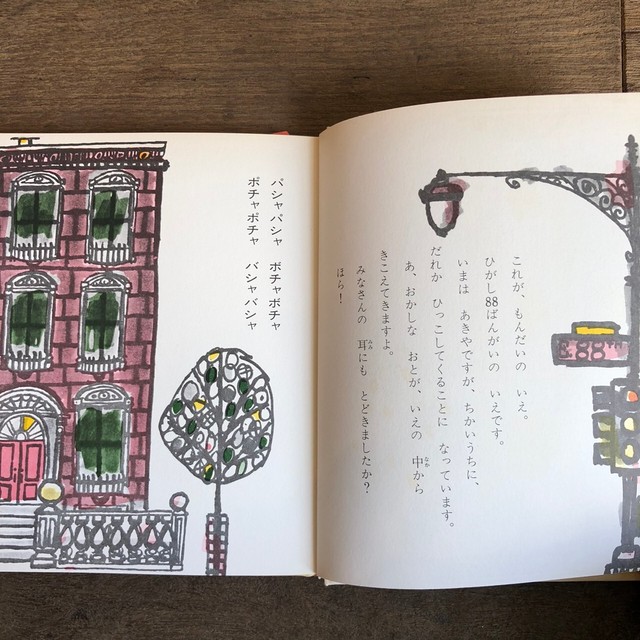 E.88ST
これが、もんだいの いえ。
ひがし88ばんがいの いえです。
いまは あきやですが、ちかいうちに、
だれか ひっこしてくることに なっています。
あ、おかしな おとが、いえの 中から
きこえてきますよ。
みなさんの 耳にも とどきましたか？
ほら！
パシャパシャ ポチャポチャ
ボチャボチャ バシャバシャ